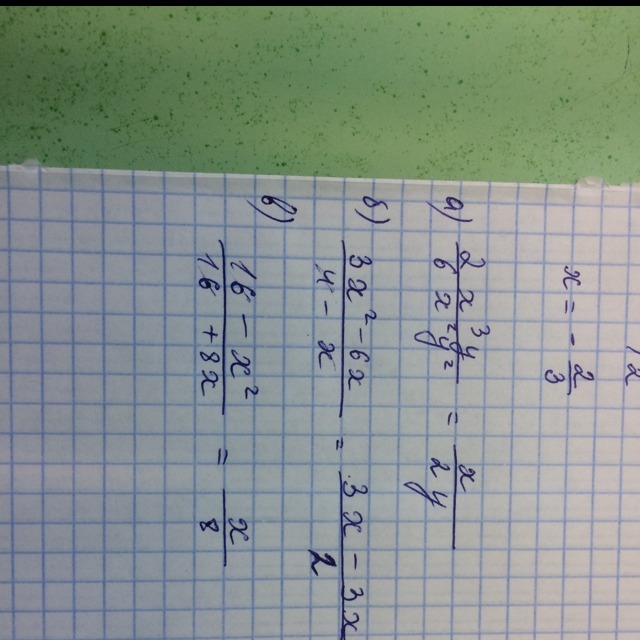 12
x = - 2/3
а) 2x³y / 6x²y² = x / 2y
б) 3x² - 6x / 4 - x = 3x - 3x / 2
в) 16 - x² / 16 + 8x = x / 8